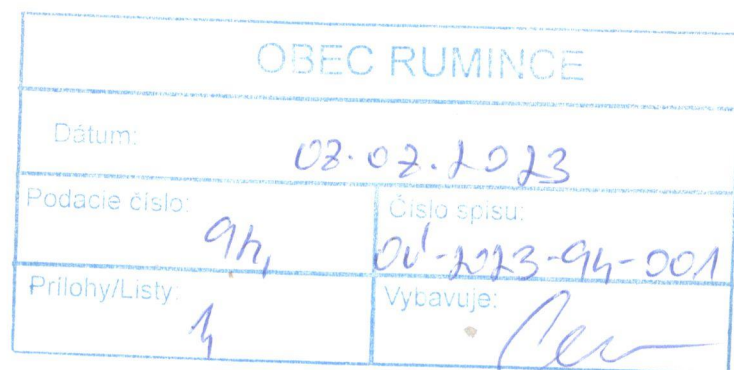 OBEC RUMINCE
Dátum:
Podacie číslo: Číslo spisu:
94 OÚ-2023-94-001
Prílohy/Listy: Vybavuje: